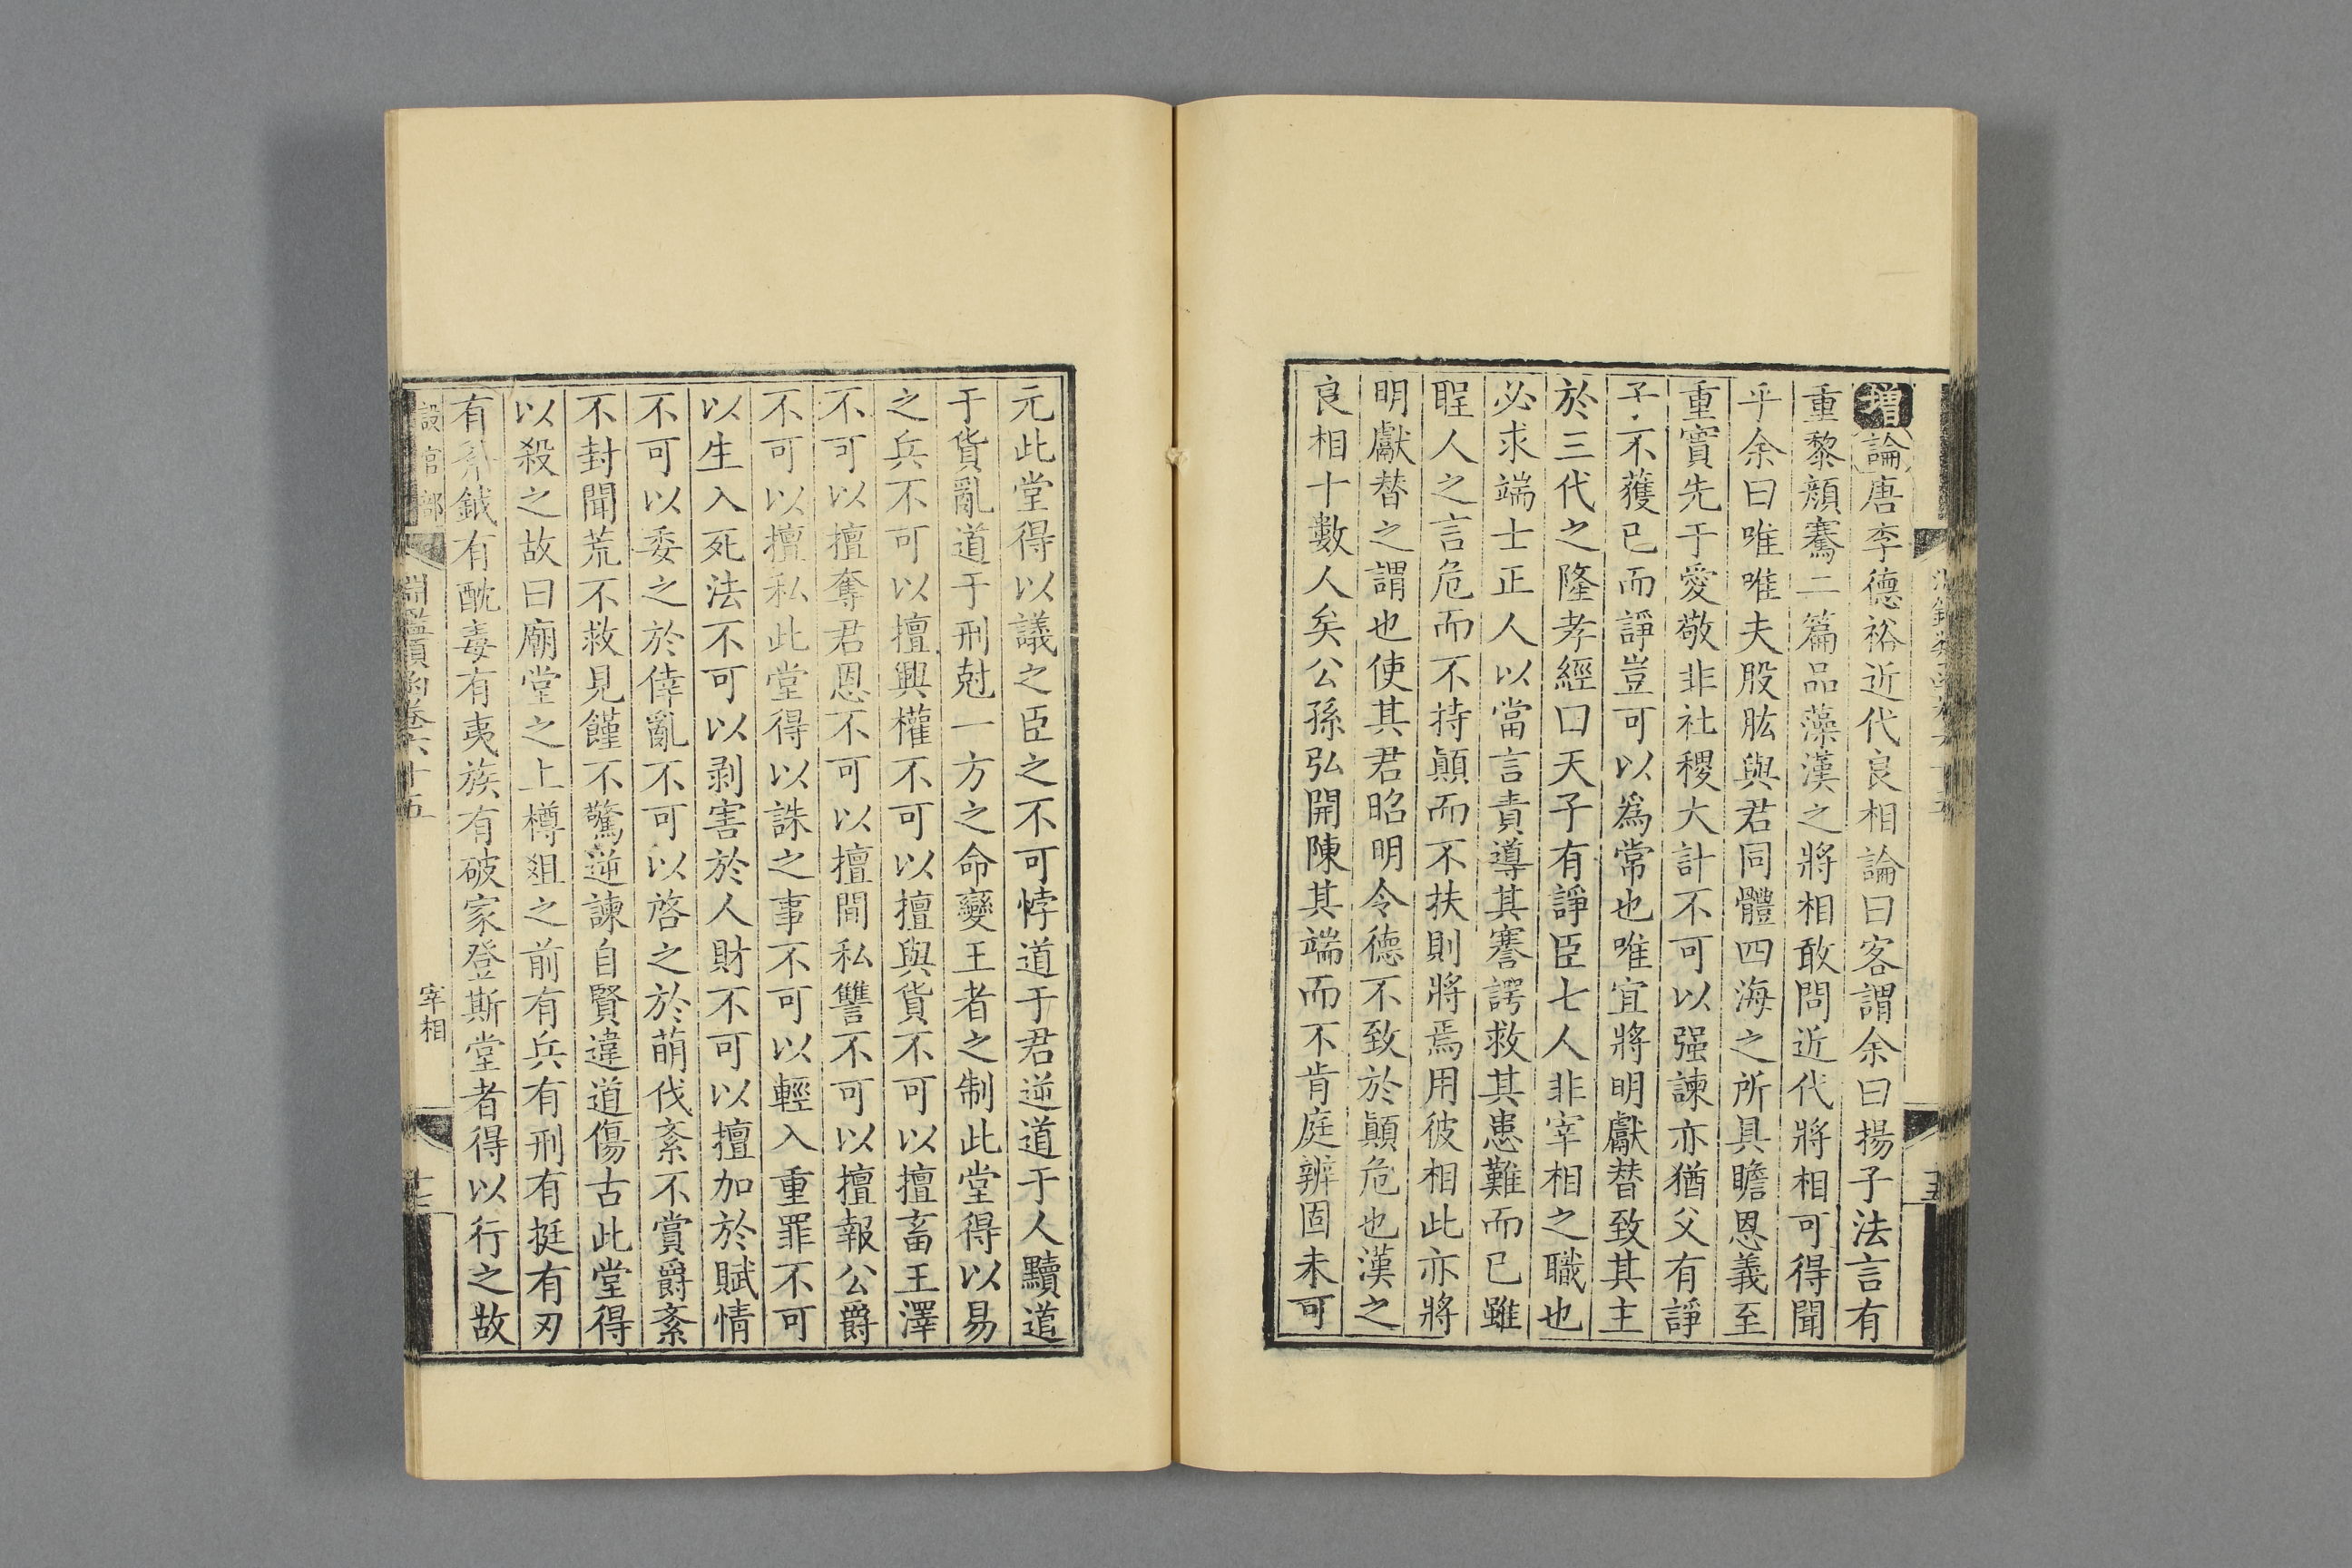 增論唐李德裕近代良相論曰客謂余曰揚子法言有
重黎顏騫二篇品藻漢之將相敢問近代將相可得聞
乎余曰唯唯夫股肱與君同體四海之所具瞻恩義至
重實先于愛敬非社稷大計不可以强諫亦猶父有諍
子不獲已而諍豈可以為常也唯宜將明獻替致其主
於三代之隆孝經曰天子有諍臣七人非宰相之職也
必求端士正人以當言責導其謇諤救其患難而已雖
聖人之言危而不持顚而不扶則將焉用彼相此亦將
明獻替之謂也使其君昭明令德不致於顚危也漢之
良相十數人矣公孫弘開陳其端而不肯庭辨固未可
元此堂得以議之臣之不可悖道于君逆道于人黷道
于貨亂道于刑尅一方之命變王者之制此堂得以易
之兵不可以擅興權不可以擅與貨不可以擅畜王澤
不可以擅奪君恩不可以擅間私讐不可以擅報公爵
不可以擅私此堂得以誅之事不可以輕入重罪不可
以生入死法不可以剥害於人財不可以擅加於賦情
不可以委之於倖亂不可以啓之於萌伐紊不賞爵紊
不封聞荒不救見饉不驚逆諫自賢違道傷古此堂得
以殺之故曰廟堂之上樽俎之前有兵有刑有挺有刃
有斧鉞有酖毒有夷族有破家登斯堂者得以行之故
設官部 淵鑑類函卷六十五 宰相